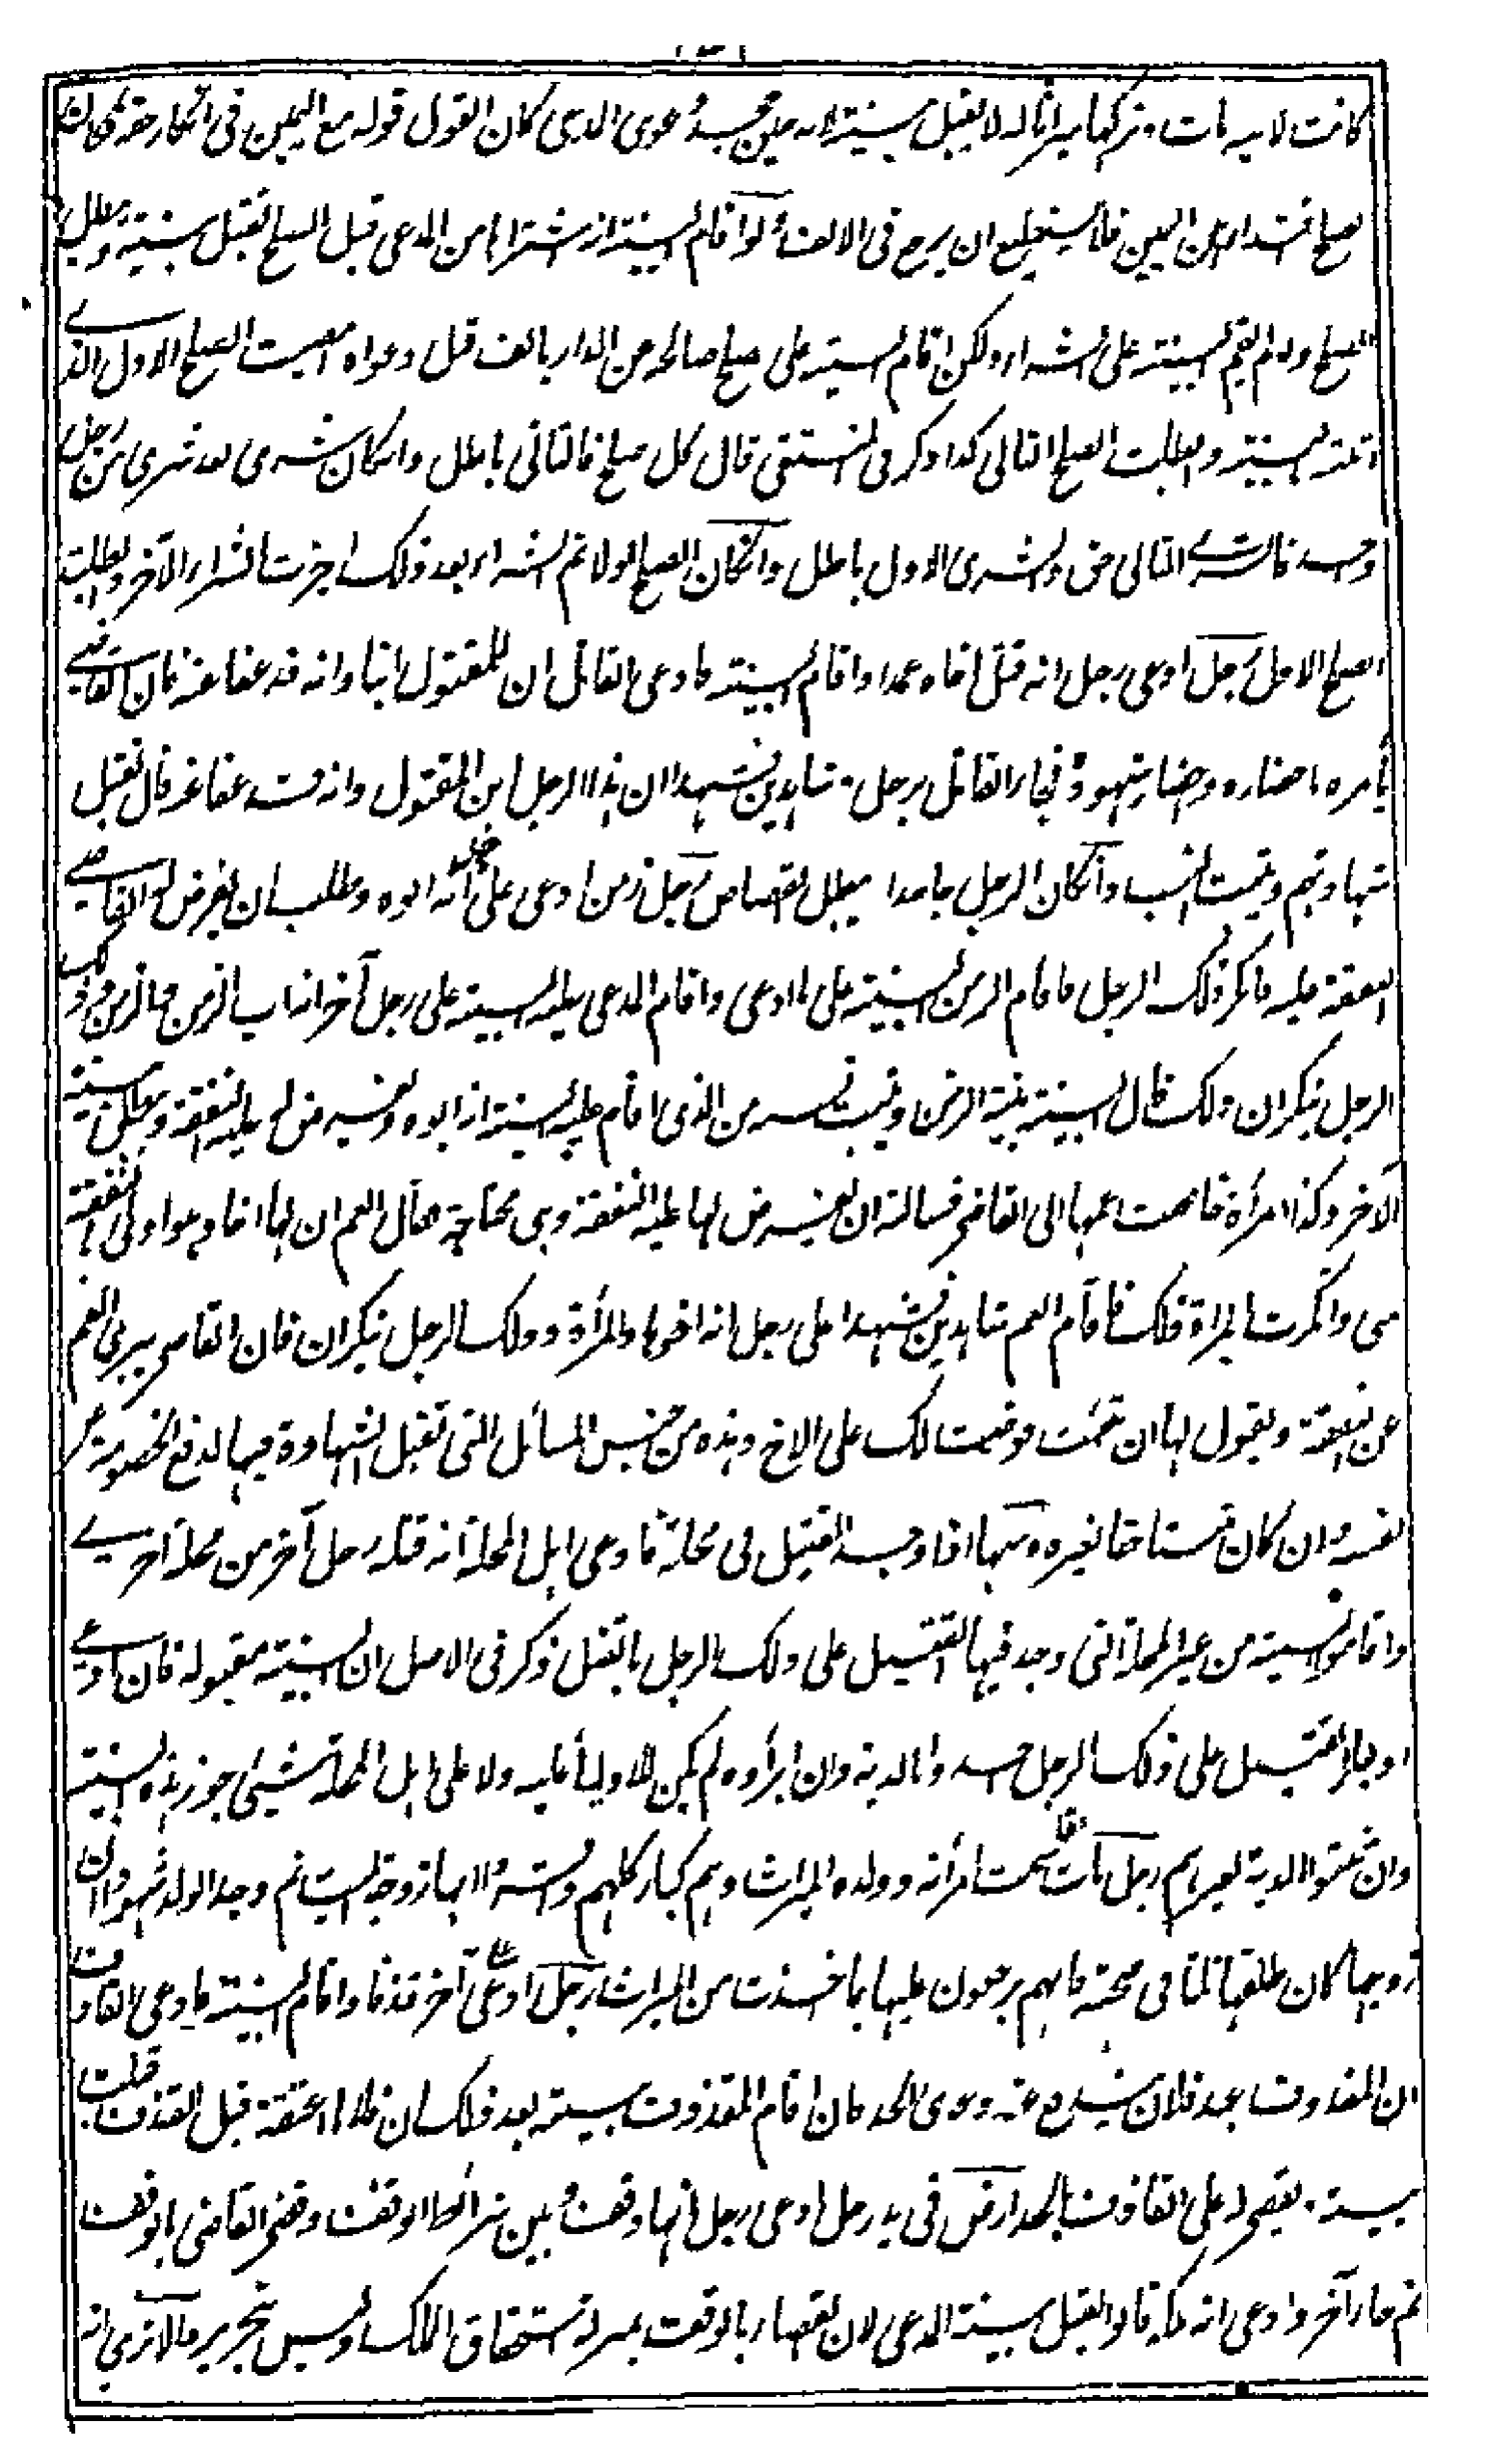 كانت لابيه مات وتركها ميراثا له لا يقبل بينته لانه حين جحد دعوى المدعى كان القول قوله مع اليمين فى انكار حقه فكان
الصلح افتداء عن اليمين فلا يستطيع ان يرجع فى الالف ولو اقام البينة انه اشتراها من المدعى قبل الصلح تقبل بينته ويبطل
الصلح ولو لم يقم البينة على الشراء ولكن اقام البينة على صلح صالحه عن الدار بالف قبل دعواه امضيت الصلح الاول الذے
اثبته بالبينة وابطلت الصلح الثانى كذا ذكر فى المنتقى قال كل صلح فالثانى باطل وان كان شرى بعد شرى من رجل
واحد فالشرے الثانى حق والشرى الاول باطل وان كان الصلح اولا ثم الشراء بعد ذلك اجزت الشراء الآخر وابطلت
الصلح الاول رجل ادعى رجل انه قتل اخاه عمدا واقام البينة فادعى القاتل ان للمقتول ابنا وانه قد عفا عنه فان القاضے
يأمره باحضاره واحضار شهوده فجاء القاتل برجل وشاهدين فشهدا ان هذا الرجل ابن المقتول وانه قد عفا عنه قال تقبل
شهادتهم ويثبت النسب وان كان الرجل جاحدا ويبطل القصاص رجل زمن ادعى على رجل انه ابوه وطلب ان يفرض له القاضے
النفقة عليه فانكر ذلك الرجل فاقام الزمن البينة على ما ادعى واقام المدعى عليه البينة على رجل آخر انه اب الزمن والزمن وذلك
الرجل ينكران ذلك قال البينة بينة الزمن ويثبت نسبه من الذى اقام عليه البينة انه ابوه ويفرض له عليه النفقة ويبطل بينة
الآخر وكذا امرأة خاصمت عمها الى القاضى فسالته ان يفرض لها عليه النفقة وهى محتاجة فقال العم ان لها اخا وهو اولى بالنفقة
منى وانكرت المرأة ذلك فاقام العم شاهدين فشهدا على رجل انه اخوها والمرأة وذلك الرجل ينكران فان القاضى يبرئ العم
عن النفقة ويقول لها ان شئت فرضت لك على الاخ وهذه من جنس المسائل التى تقبل الشهادة فيها لدفع الخصومة عن
نفسه وان كان مستاحقا لغيره ومنها اذا وجد القتيل فى محلة فادعى اهل المحلة انه قتله رجل آخر من محلة اخرے
واقاموا البينة من غير المحلة التى وجد فيها القتيل على ذلك الرجل بالقتل ذكر فى الاصل ان البينة مقبولة فان ادعے
اولياء القتيل على ذلك الرجل اخذوا بالدية وان ابرأوه لم يكن للاولياء عليه ولا على اهل المحلة شيئ جوز هذه البينة
وان ثبتوا الدية لغيرهم رجل مات فقاسمت امرأته وولده الميراث وهم كبار كلهم واقروا انها زوجة الميت ثم وجد الولد شهودا ان
زوجها كان طلقها ثلثا فى صحته فانهم يرجعون عليها بما اخذت من الميراث رجل ادعى على آخر قذفا واقام البينة فادعى القاذف
ان المقذوف عبد فلان يندفع عنه دعوى الحد فان اقام المقذوف بينته بعد ذلك ان فلانا اعتقه قبل القذف قبلت
بينته ويقضى على القاذف بالحد ارض فى يد رجل ادعى رجل انها وقف وبين شرائط الوقف وقضى القاضى بالوقف
ثم جاء آخر وادعى انه ملكه قالوا يقبل بينة المدعى لان القضاء بالوقف بمنزلة استحقاق الملك وليس بتحرير الا ترى انه